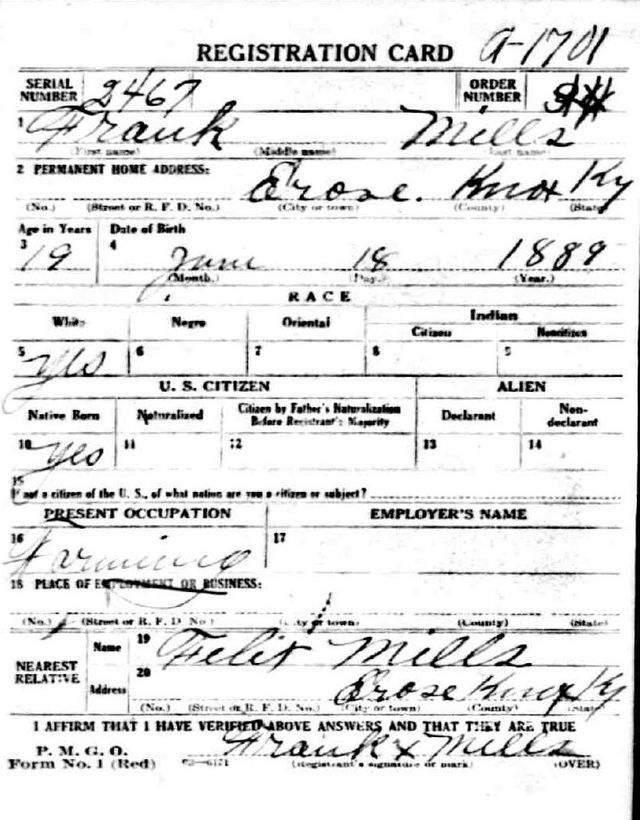 REGISTRATION CARD A-1701
SERIAL NUMBER 2467 ORDER NUMBER
1 Frank Mills
(First name) (Middle name) (Last name)
2 PERMANENT HOME ADDRESS:
Erose. Knox Ky
(No.) (Street or R. F. D. No.) (City or town) (County) (State)
Age in Years Date of Birth
3 19 4 June 18 1889
(Month.) (Day.) (Year.)
RACE
White Negro Oriental Indians
Citizen Noncitizen
5 yes 6 7 8 9
U. S. CITIZEN ALIEN
Native Born Naturalized Citizen by Father's Naturalization Before Registrant's Majority Declarant Non-declarant
10 yes 11 12 13 14
15
If not a citizen of the U. S., of what nation are you a citizen or subject?
PRESENT OCCUPATION EMPLOYER'S NAME
16 Farming 17
18 PLACE OF EMPLOYMENT OR BUSINESS:
(No.) (Street or R. F. D. No.) (City or town) (County) (State)
NEAREST RELATIVE Name 19 Felix Mills
Address 20 Erose Knox Ky
(No.) (Street or R. F. D. No.) (City or town) (County) (State)
I AFFIRM THAT I HAVE VERIFIED ABOVE ANSWERS AND THAT THEY ARE TRUE
P. M. G. O.
Form No. 1 (Red) 03—6171 Frank x Mills
(Registrant's signature or mark) (OVER)